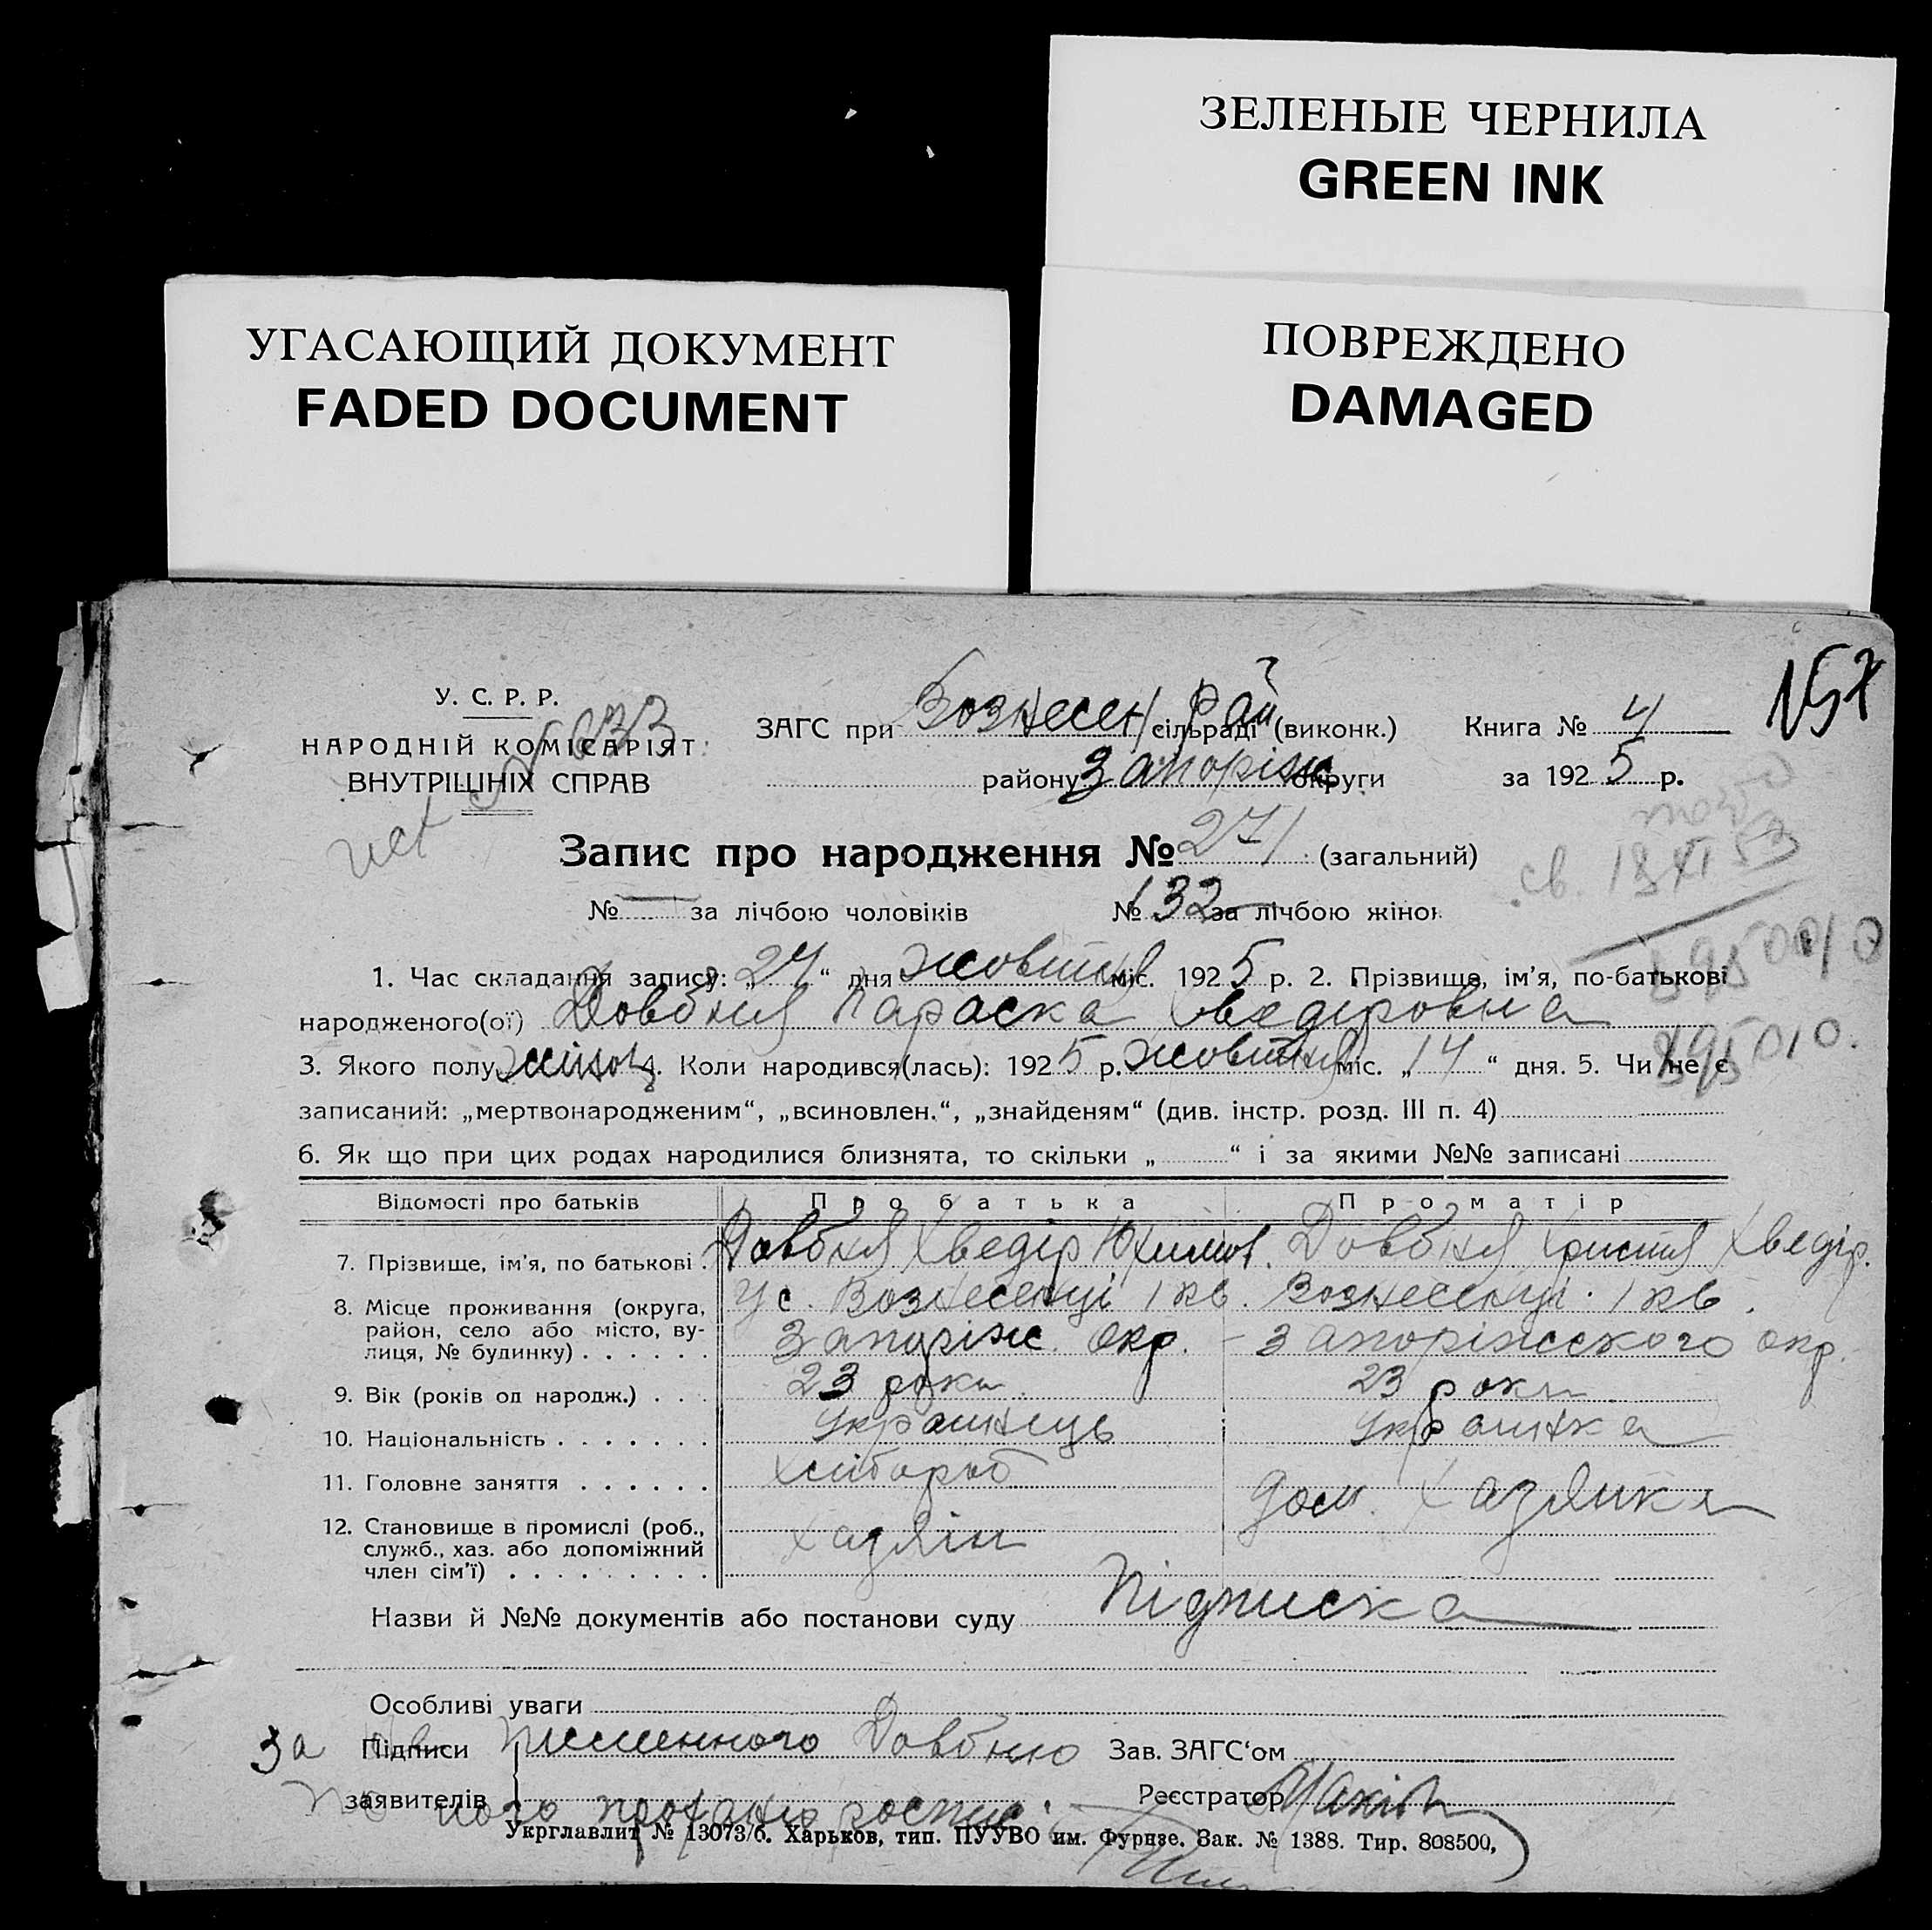 ЗЕЛЕНЫЕ ЧЕРНИЛА
GREEN INK
УГАСАЮЩИЙ ДОКУМЕНТ
FADED DOCUMENT
ПОВРЕЖДЕНО
DAMAGED
157
У. С. Р. Р.
НАРОДНІЙ КОМІСАРІЯТ
ВНУТРІШНІХ СПРАВ
ЗАГС при Вознесен рай сільраді (виконк.)
району Запоріж округи
Книга № 4
за 1925 р.
Запис про народження № 271 (загальний)
№ — за лічбою чоловіків № 132 за лічбою жінок
1. Час складання запису: „24“ дня жовтня міс. 1925 р. 2. Прізвище, ім’я, по-батькові
народженого(ої) Довбня Параска Хведіровна
3. Якого полу жіноч 4. Коли народився(лась): 1925 р. жовтня міс. „14“ дня. 5. Чи не є
записаний: „мертвонародженим“, „всиновлен.“, „знайденям“ (див. інстр. розд. III п. 4)
6. Як що при цих родах народилися близнята, то скільки „ “ і за якими №№ записані
895010.
Відомості про батьків Про батька Про матір
7. Прізвище, ім’я, по батькові . Довбня Хведір Юхимов. Довбня Христя Хведір.
8. Місце проживання (округа, район, село або місто, вулиця, № будинку) . . . . . . У с. Вознесенці 1 кв. Запоріж. окр. Вознесенці. 1 кв. Запоріжського окр.
9. Вік (років од народж.) . . . 23 роки 23 роки
10. Національність . . . . . . . Українець Українка
11. Головне заняття . . . . . . Хлібороб дом. Хазяйка
12. Становище в промислі (роб., служб., хаз. або допоміжний член сім’ї) . . . . . . . . . Хазяїн
Назви й №№ документів або постанови суду Підписка
Особливі уваги
За Підписи Довбню Зав. ЗАГС‘ом
заявителів його проханю роспис. Реєстратор
Укрглавліт № 13073/б. Харьков, тип. ПУУВО им. Фрунзе. Зак. № 1388. Тир. 808500,